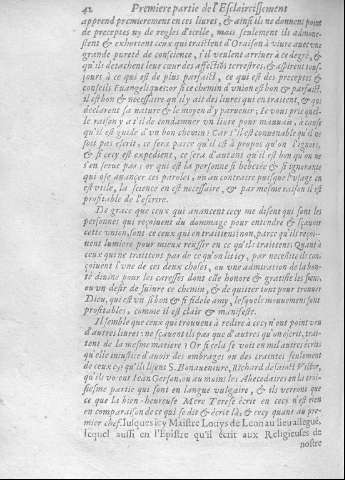 42 Premiere partie de l'Esclaircissement
apprend premierement en ces liures, & ainsi ils ne donnent point
de preceptes ny de regles d'icelle, mais seulement ils admone-
stent & exhortent ceux qui traittent d'Oraison à viure auec vne
grande pureté de conscience, s'il veulent arriuer à ce degré, &
qu'ils detachent leur cœur des affectiōs terrestres, & aspirent tous-
jours à ce qui est de plus parfaict, ce qui est des preceptes &
conseils Euangeliques: or si ce chemin d'vnion est bon & parfaict,
il est bon & necessaire qu'il y ait des liures qui en traitent, & qui
declarent sa nature & le moyen d'y paruenir. Ie vous prie quel-
le raison y a t'il de condamner vn liure pour mauuais, à cause
qu'il est guide d'vn bon chemin? Car s'il est conuenable qu'il ne
soit pas escrit, ce sera parce qu'il est à propos qu'on l'ignore,
& si cecy est expedient, ce sera d'autant qu'il est bon qu'on ne
s'en serue pas: or qui est la personne si hebetée & si ignorante
qui ose auancer ces paroles, ou au contraire puisque l'vsage en
est vtile, la science en est necessaire, & par mesme raison il est
profitable de l'escrire.
De grace que ceux qui auancent cecy me disent qui sont les
personnes qui reçoiuent du dommage pour entendre & sçauoir
cette vnion, sont ce ceux qui en traittent? non, parce qu'ils reçoi-
uent lumiere pour mieux reussir en ce qu'ils traittent: Quant à
ceux qui ne traittent pas de ce qu'on lit icy, par necessité ils con-
çoiuent l'vne de ces deux choses, ou vne admiration de la bon-
té diuine pour les caresses dont elle honore & gratifie les siens,
ou vn desir de suiure ce chemin, & de quitter tout pour trouuer
Dieu, qui est vn si bon & si fidele amy, lesquels mouuemens sont
profitables, comme il est clair & manifeste.
Il semble que ceux qui trouuent à redire à cecy n'ont point veu
d'autres liures: ne sçauent-ils pas que d'autres qu'on écrit, trait-
tent de la mesme matiere? Or si cela se voit en mil autres écrits
qu'elle iniustice d'auoir des ombrages où des craintes seulement
de ceux cy? qu'ils lisent S. Bonauenture, Richard de sainct Victor,
qu'ils voyent Iean Gerson, ou au moins les Abecedaires en la troi-
siesme partie qui sont en langue vulgaire, & ils verront que
ce que la bien-heureuse Mere Terese écrit en cecy n'est rien
en comparaison de ce qui se dit & écrit là, & cecy quant au pre-
mier chef. Iusques icy Maistre Louys de Leon au lieu allegué,
lequel aussi en l'Epistre qu'il écrit aux Religieuses de
nostre